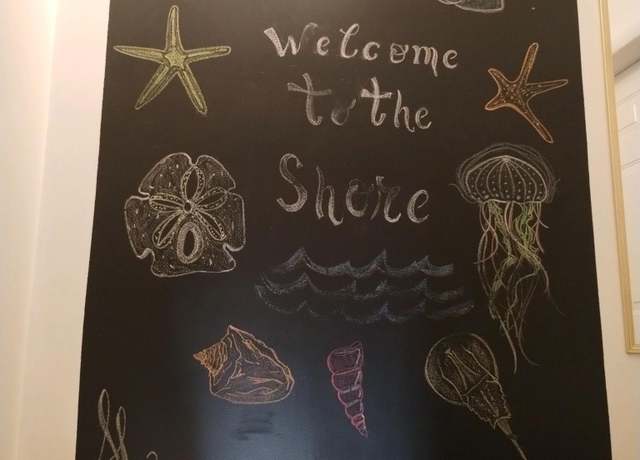 Welcome
to the
Shore